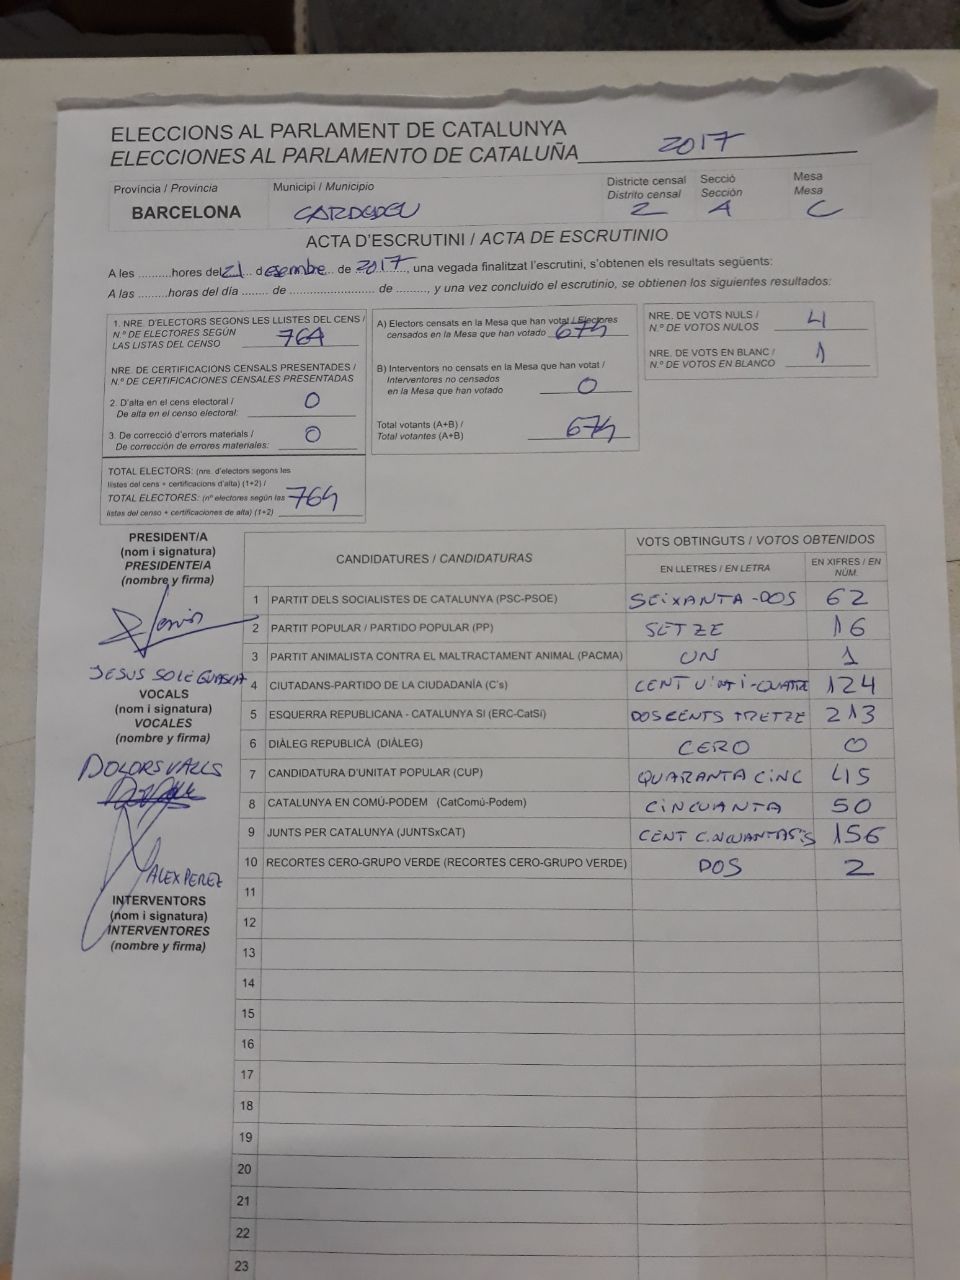 ELECCIONS AL PARLAMENT DE CATALUNYA
ELECCIONES AL PARLAMENTO DE CATALUÑA 2017
Província / Provincia
BARCELONA
Municipi / Municipio
CARDEDEU
Districte censal
Distrito censal
2
Secció
Sección
A
Mesa
Mesa
C
ACTA D'ESCRUTINI / ACTA DE ESCRUTINIO
A les .........hores del 21 desembre de 2017, una vegada finalitzat l'escrutini, s'obtenen els resultats següents:
A las .........horas del día ........ de ......................... de .........., y una vez concluido el escrutinio, se obtienen los siguientes resultados:
1. NRE. D'ELECTORS SEGONS LES LLISTES DEL CENS /
N.º DE ELECTORES SEGÚN
LAS LISTAS DEL CENSO 764
NRE. DE CERTIFICACIONS CENSALS PRESENTADES /
N.º DE CERTIFICACIONES CENSALES PRESENTADAS
2. D'alta en el cens electoral /
De alta en el censo electoral: 0
3. De correcció d'errors materials /
De corrección de errores materiales: 0
TOTAL ELECTORS: (nre. d'electors segons les
llistes del cens + certificacions d'alta) (1+2) /
TOTAL ELECTORES: (nº electores según las
listas del censo + certificaciones de alta) (1+2) 764
A) Electors censats en la Mesa que han votat / Electores
censados en la Mesa que han votado 674
B) Interventors no censats en la Mesa que han votat /
Interventores no censados
en la Mesa que han votado 0
Total votants (A+B) /
Total votantes (A+B) 674
NRE. DE VOTS NULS /
N.º DE VOTOS NULOS 4
NRE. DE VOTS EN BLANC /
N.º DE VOTOS EN BLANCO 1
PRESIDENT/A
(nom i signatura)
PRESIDENTE/A
(nombre y firma)
JESUS SOLE GUASCH
VOCALS
(nom i signatura)
VOCALES
(nombre y firma)
DOLORS VALLS
ALEX PEREZ
INTERVENTORS
(nom i signatura)
INTERVENTORES
(nombre y firma)
CANDIDATURES / CANDIDATURAS
VOTS OBTINGUTS / VOTOS OBTENIDOS
EN LLETRES / EN LETRA
EN XIFRES / EN
NÚM.
1 PARTIT DELS SOCIALISTES DE CATALUNYA (PSC-PSOE) SEIXANTA-DOS 62
2 PARTIT POPULAR / PARTIDO POPULAR (PP) SETZE 16
3 PARTIT ANIMALISTA CONTRA EL MALTRACTAMENT ANIMAL (PACMA) UN 1
4 CIUTADANS-PARTIDO DE LA CIUDADANÍA (C's) CENT VINTI-QUATRE 124
5 ESQUERRA REPUBLICANA - CATALUNYA SI (ERC-CatSí) DOSCENTS TRETZE 213
6 DIÀLEG REPUBLICÀ (DIÀLEG) CERO 0
7 CANDIDATURA D'UNITAT POPULAR (CUP) QUARANTA CINC 45
8 CATALUNYA EN COMÚ-PODEM (CatComú-Podem) CINCUANTA 50
9 JUNTS PER CATALUNYA (JUNTSxCAT) CENT CINQUANTASIS 156
10 RECORTES CERO-GRUPO VERDE (RECORTES CERO-GRUPO VERDE) DOS 2
11
12
13
14
15
16
17
18
19
20
21
22
23